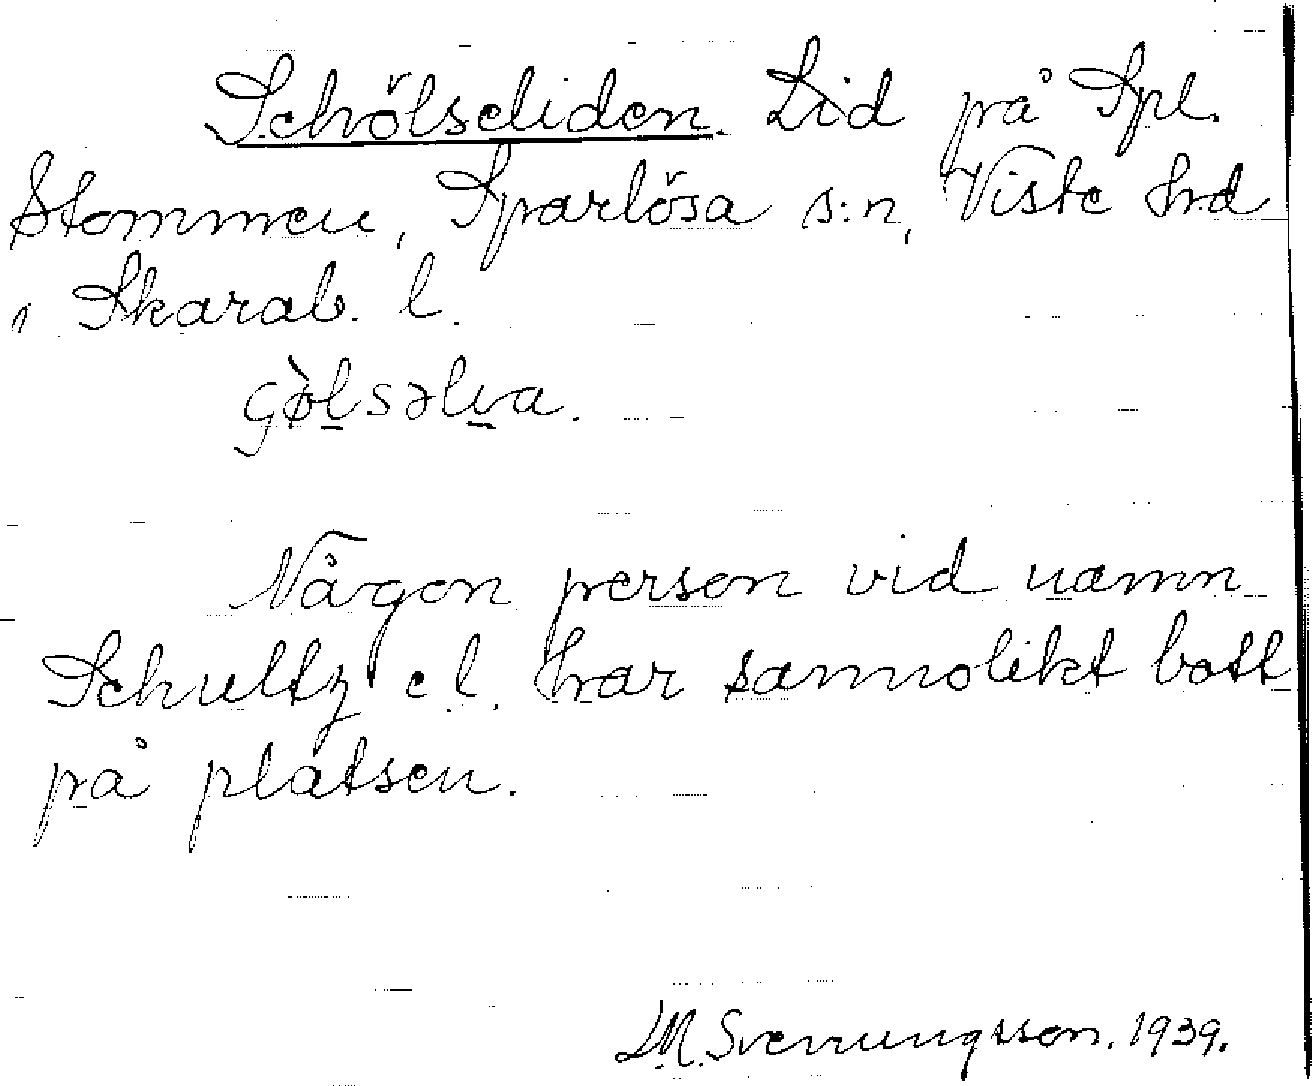 Schölseliden. Lid på Spl.
Stommen, Sparlösa s:n, Viste hrd
i Skarab. l.
gø̀lsəlıa.
Någon person vid namn
Schultz e l. har sannolikt bott
på platsen.
L.M. Svenungsson. 1939.